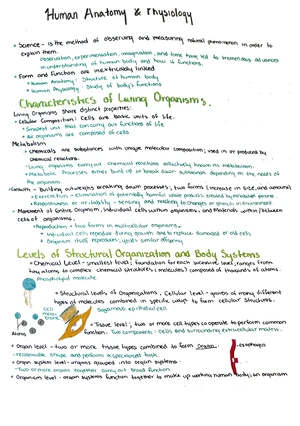 Human Anatomy & Physiology
• Science - is the method of observing and measuring natural phenomenon in order to
explain them.
Observation, experimentation, imagination, and time have led to tremendous advances
in understanding of human body and how it functions.
• Form and function are inextricably linked
• Human Anatomy: Structure of human body
• Human Physiology: Study of body's functions
Characteristics of Living Organisms.
Living Organisms share distinct properties:
- Cellular Composition: Cells are basic units of life.
• Smallest unit that can carry out functions of life
• All organisms are composed of cells
Metabolism
• Chemicals are substances with unique molecular composition; used in or produced by
chemical reactions.
• Living organisms carry out chemical reactions collectively known as metabolism.
• Metabolic Processes either build up or break down substances depending on the needs of
the organism.
- Growth - building outweighs breaking down processes; two forms (increase in size, and amount)
• Excretion - Elimination of potentially harmful waste products created by metabolic process.
• Responsiveness or irritability - sensing and reacting to changes or stimuli in environment
- Movement of Entire Organism, individual cells within organisms, and Materials within/between
cells of organisms.
• Reproduction - two forms in multicellular organisms.
• Individual cells reproduce during growth and to replace damaged or old cells
• Organism itself reproduces; yields similar offspring
Levels of Structural Organization and Body Systems
• Chemical Level - smallest level; foundation for each successive level; ranges from
tiny atoms to complex chemical structures (molecules) composed of thousands of atoms.
Phospholipid molecule
• Structural levels of Organizations, Cellular level - groups of many different
types of molecules combined in specific ways to form cellular structures.
Cell
membrane
Squamous epithelial cell
• Tissue level, two or more cell types cooperate to perform common
function. Two components: cells and surrounding extracellular matrix.
Atoms
• Organ level - two or more tissue types combined to form Organ.
- recognizable shape and perform a specialized task.
esophagus
• Organ system level - organs grouped into organ systems
- Two or more organs together carry out broad function
• Organism level - organ systems function together to make up working human body; an organism